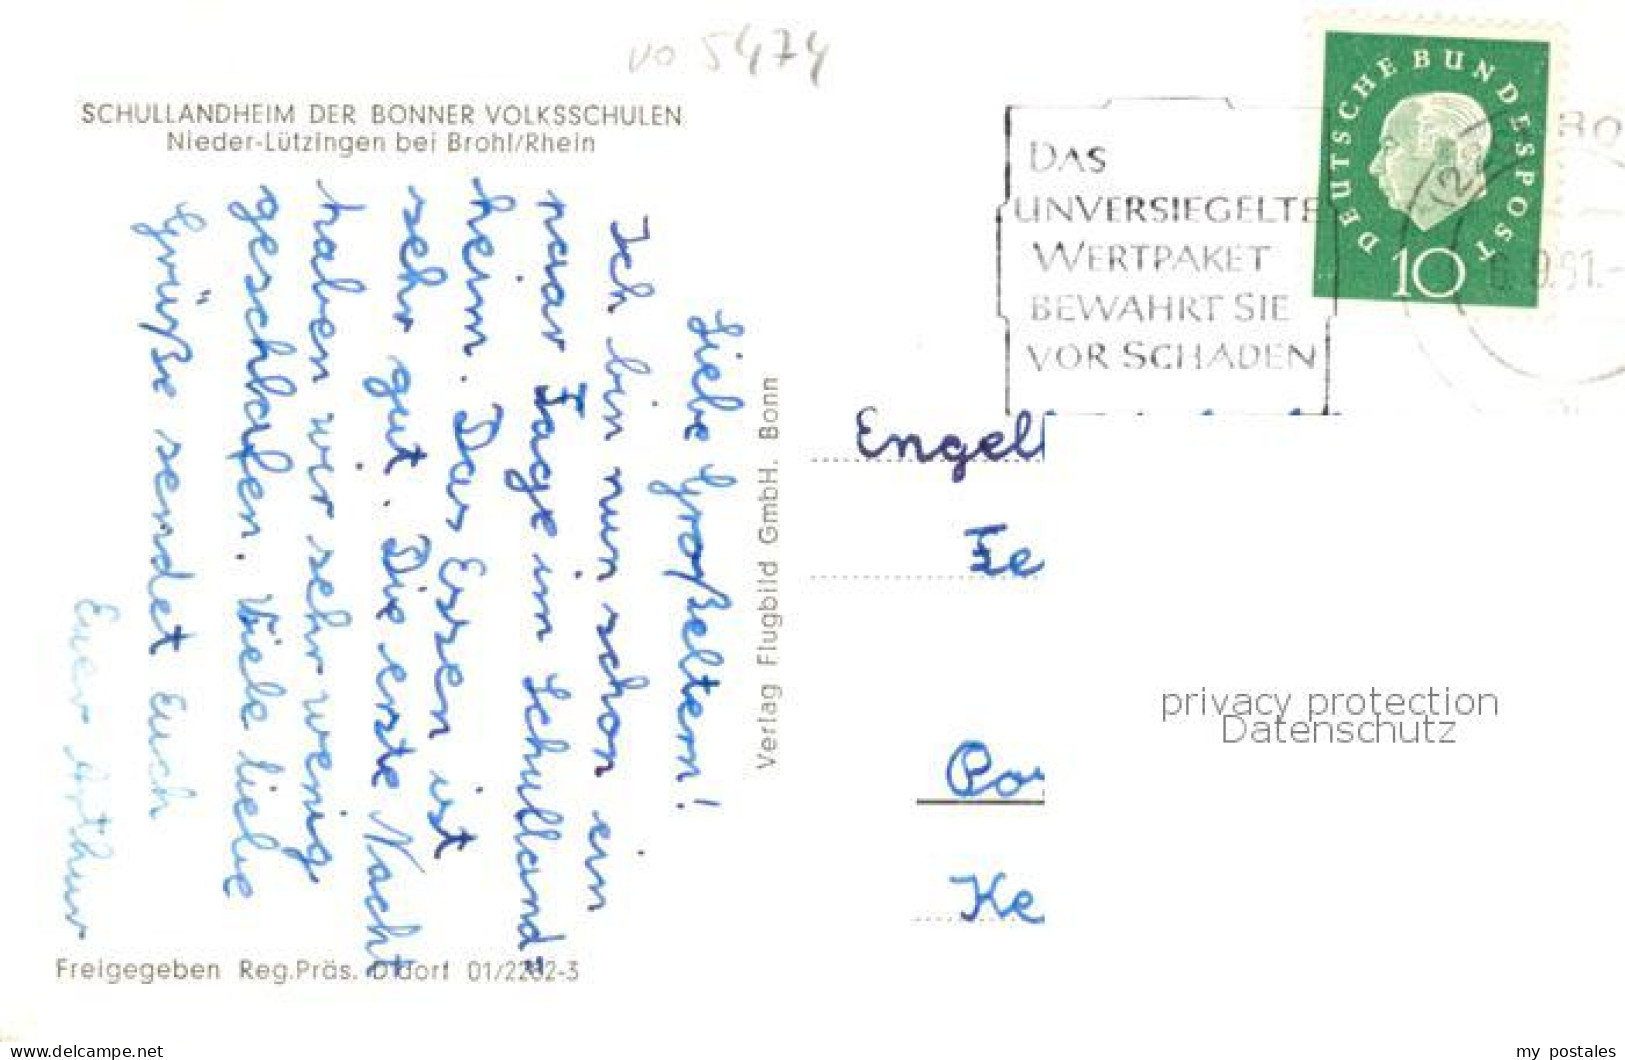 vo 5474
SCHULLANDHEIM DER BONNER VOLKSSCHULEN
Nieder-Lützingen bei Brohl/Rhein
Liebe Großeltern!
Ich bin nun schon ein
paar Tage im Schulland-
heim. Das Essen ist
sehr gut. Die erste Nacht
haben wir sehr wenig
geschlafen. Viele liebe
Grüße sendet Euch
Euer Arthur
Verlag Flugbild GmbH. Bonn
Freigegeben Reg.Präs. D'dorf 01/2282-3
DAS
UNVERSIEGELTE
WERTPAKET
BEWAHRT SIE
VOR SCHADEN
DEUTSCHE BUNDESPOST
10
Engel
privacy protection
Datenschutz
www.delcampe.net
my_postales